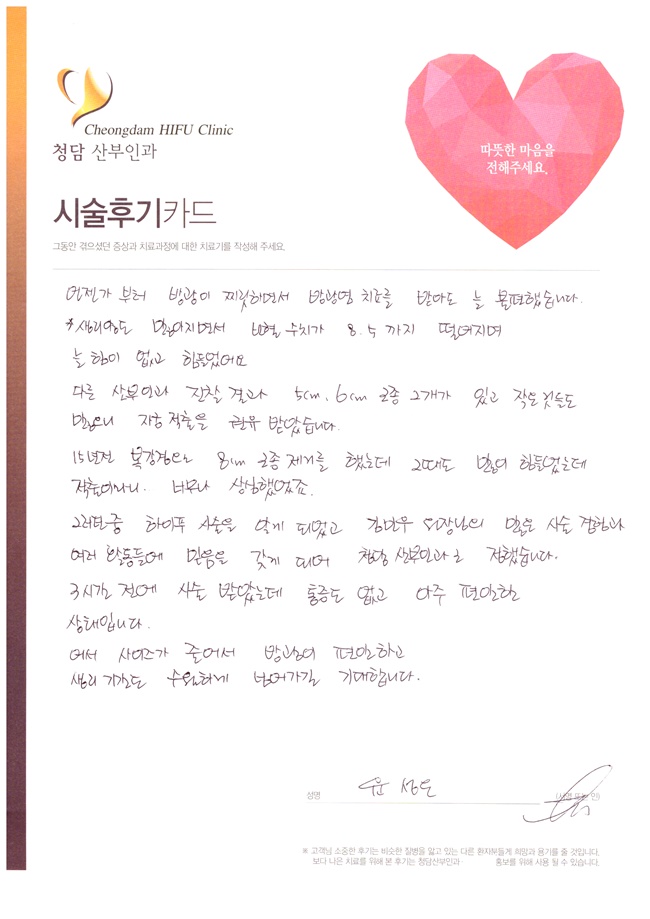 Cheongdam HIFU Clinic
청담 산부인과
따뜻한 마음을
전해주세요.
시술후기카드
그동안 겪으셨던 증상과 치료과정에 대한 치료기를 작성해 주세요.
언젠가 부터 방광이 찌릿하면서 방광염 치료를 받아도 늘 불편했습니다.
*생리양도 많아지면서 빈혈 수치가 8.5 까지 떨어지며
늘 힘이 없고 힘들었어요
다른 산부인과 진찰 결과 5cm, 6cm 근종 2개가 있고 작은것들도
많으니 자궁 적출을 권유 받았습니다.
15년전 복강경으로 8cm 근종 제거를 했는데 그때도 많이 힘들었는데
적출이라니. 너무나 상심했었죠.
그러던중 하이푸 시술을 알게 되었고 김민우 원장님의 많은 시술 경험과
여러 활동들에 믿음을 갖게 되어 청담 산부인과로 정했습니다.
3시간 전에 시술 받았는데 통증도 없고 아주 편안한
상태입니다.
어서 사이즈가 줄어서 방광이 편안하고
생리 기간도 수월하게 넘어가길 기대합니다.
성명 윤
(서명 또는 인)
※ 고객님 소중한 후기는 비슷한 질병을 앓고 있는 다른 환자분들게 희망과 용기를 줄 것입니다.
보다 나은 치료를 위해 본 후기는 청담산부인과 홍보를 위해 사용 될 수 있습니다.